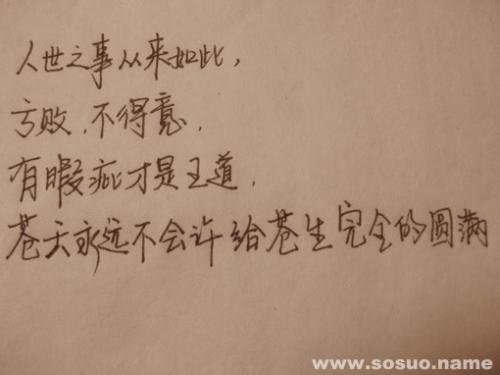 人世之事从来如此，
亏败．不得意．
有暇疵才是王道．
苍天永远不会许给苍生完全的圆满
www.sosuo.name